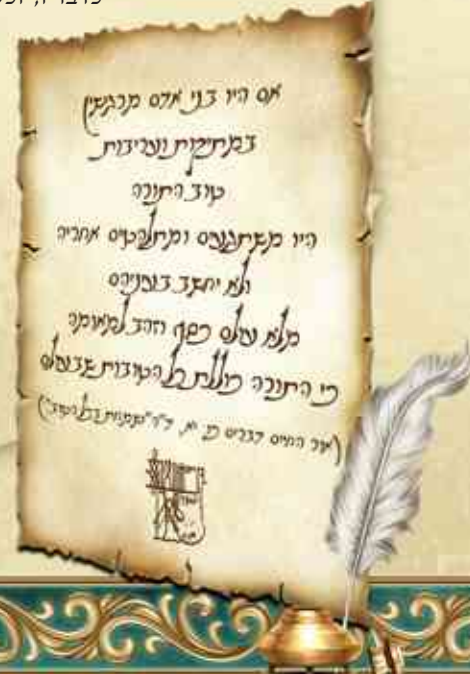 אם היו בני אדם מרגישין
במתיקות ועריבות
טוב התורה
היו משתגעים ומתלהטים אחריה
ולא יחשב בעיניהם
מלא עולם כסף וזהב למאומה
כי התורה כוללת כל הטובות שבעולם
(אור החיים דברים כו, יא, ד"ה "ושמחת בכל הטוב")